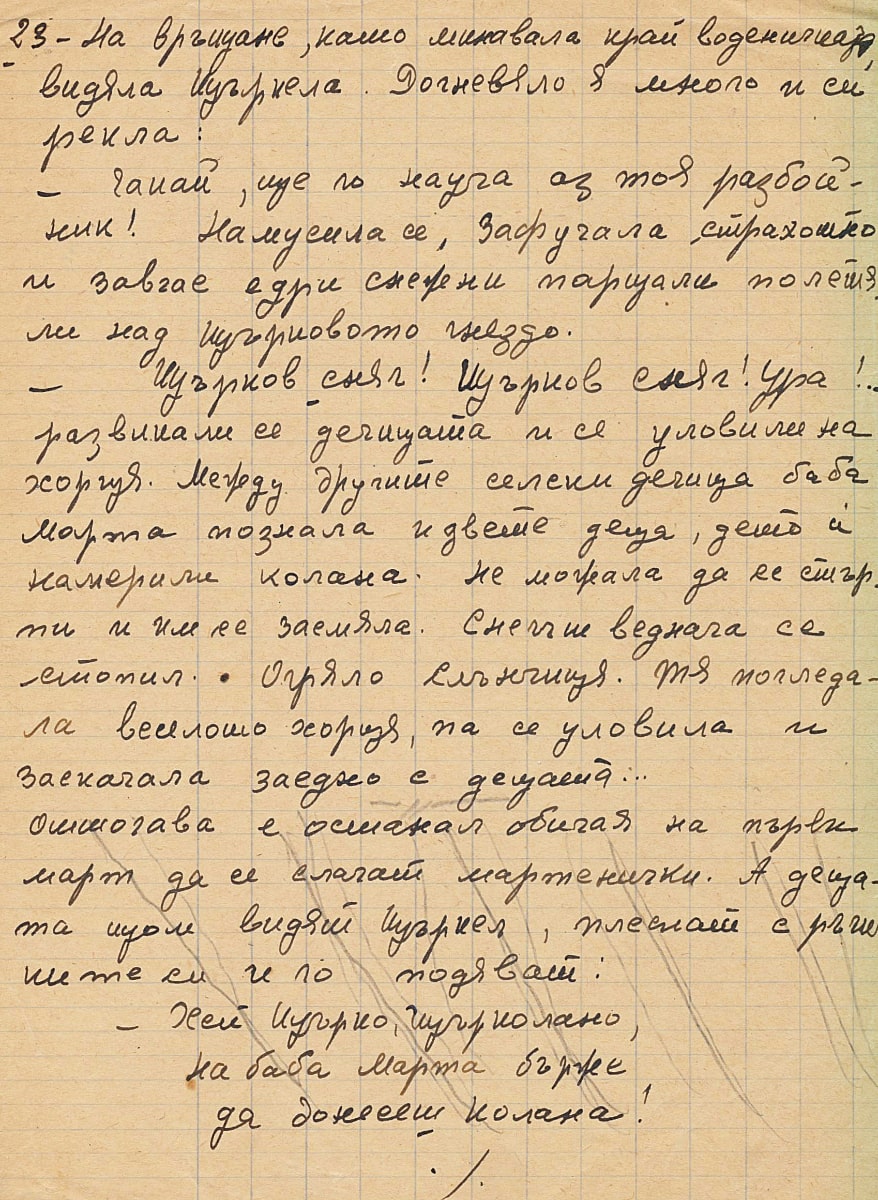 23 - На връщане, като минавала край воденичката,
видяла Щъркела. Догневяло я много и си
рекла:
- Чакай, ще го науча аз тоя разбой-
ник! Намусила се, Зафучала страхотно
и завчас едри снежни парцали полетя
ли над щърковото гнездо.
- Щърков сняг! Щърков сняг! Ура!..
развикали се дечицата и се уловили на
хорця. Между другите селски дечица баба
Марта познала и двете деца, дето ѝ
намерили колана. Не можала да се стър.
пи и им се засмяла. Снегът веднага се
стопил. Огряло Слънчиця. Тя погледа-
ла веселото хорця, па се уловила и
заскачала заедно с децата...
Оттогава е останал обичая на първи
март да се слагат мартенички. А деца-
та щом видят Щъркел, плеснат с ръчи
ките си и го подяват:
- Хей Щърко, Щърколано,
на баба Марта бърже
да донесеш колана!
./.